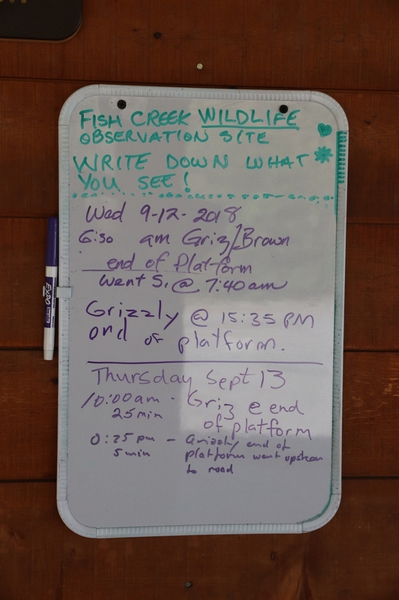 FISH CREEK WILDLIFE
OBSERVATION SITE
WRITE DOWN WHAT
YOU SEE!
Wed 9-12-2018
6:30 am Griz/Brown
end of Platform
went S, @ 7:40am
Grizzly @ 15:35 PM
end of platform.
Thursday Sept 13
10:00am - Griz @ end
25 min of platform
0:25 pm - Grizzly end of
5 min platform went upstream
to road
EXPO